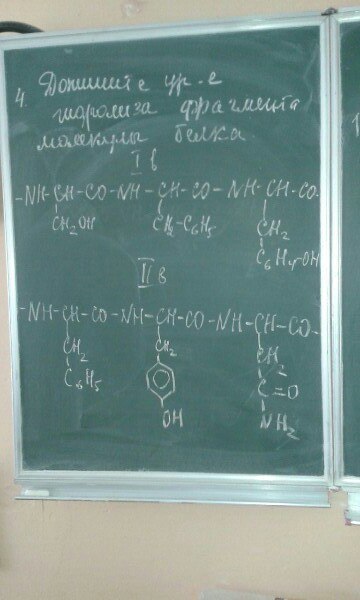 4. Допишите ур-е
гидролиза фрагмента
молекулы белка
I в
-NH-CH-CO-NH-CH-CO-NH-CH-CO-
CH2OH CH2-C6H5 CH2
C6H4-OH
II в
-NH-CH-CO-NH-CH-CO-NH-CH-CO-
CH2 CH2 CH2
C6H5 C=O
OH NH2
1